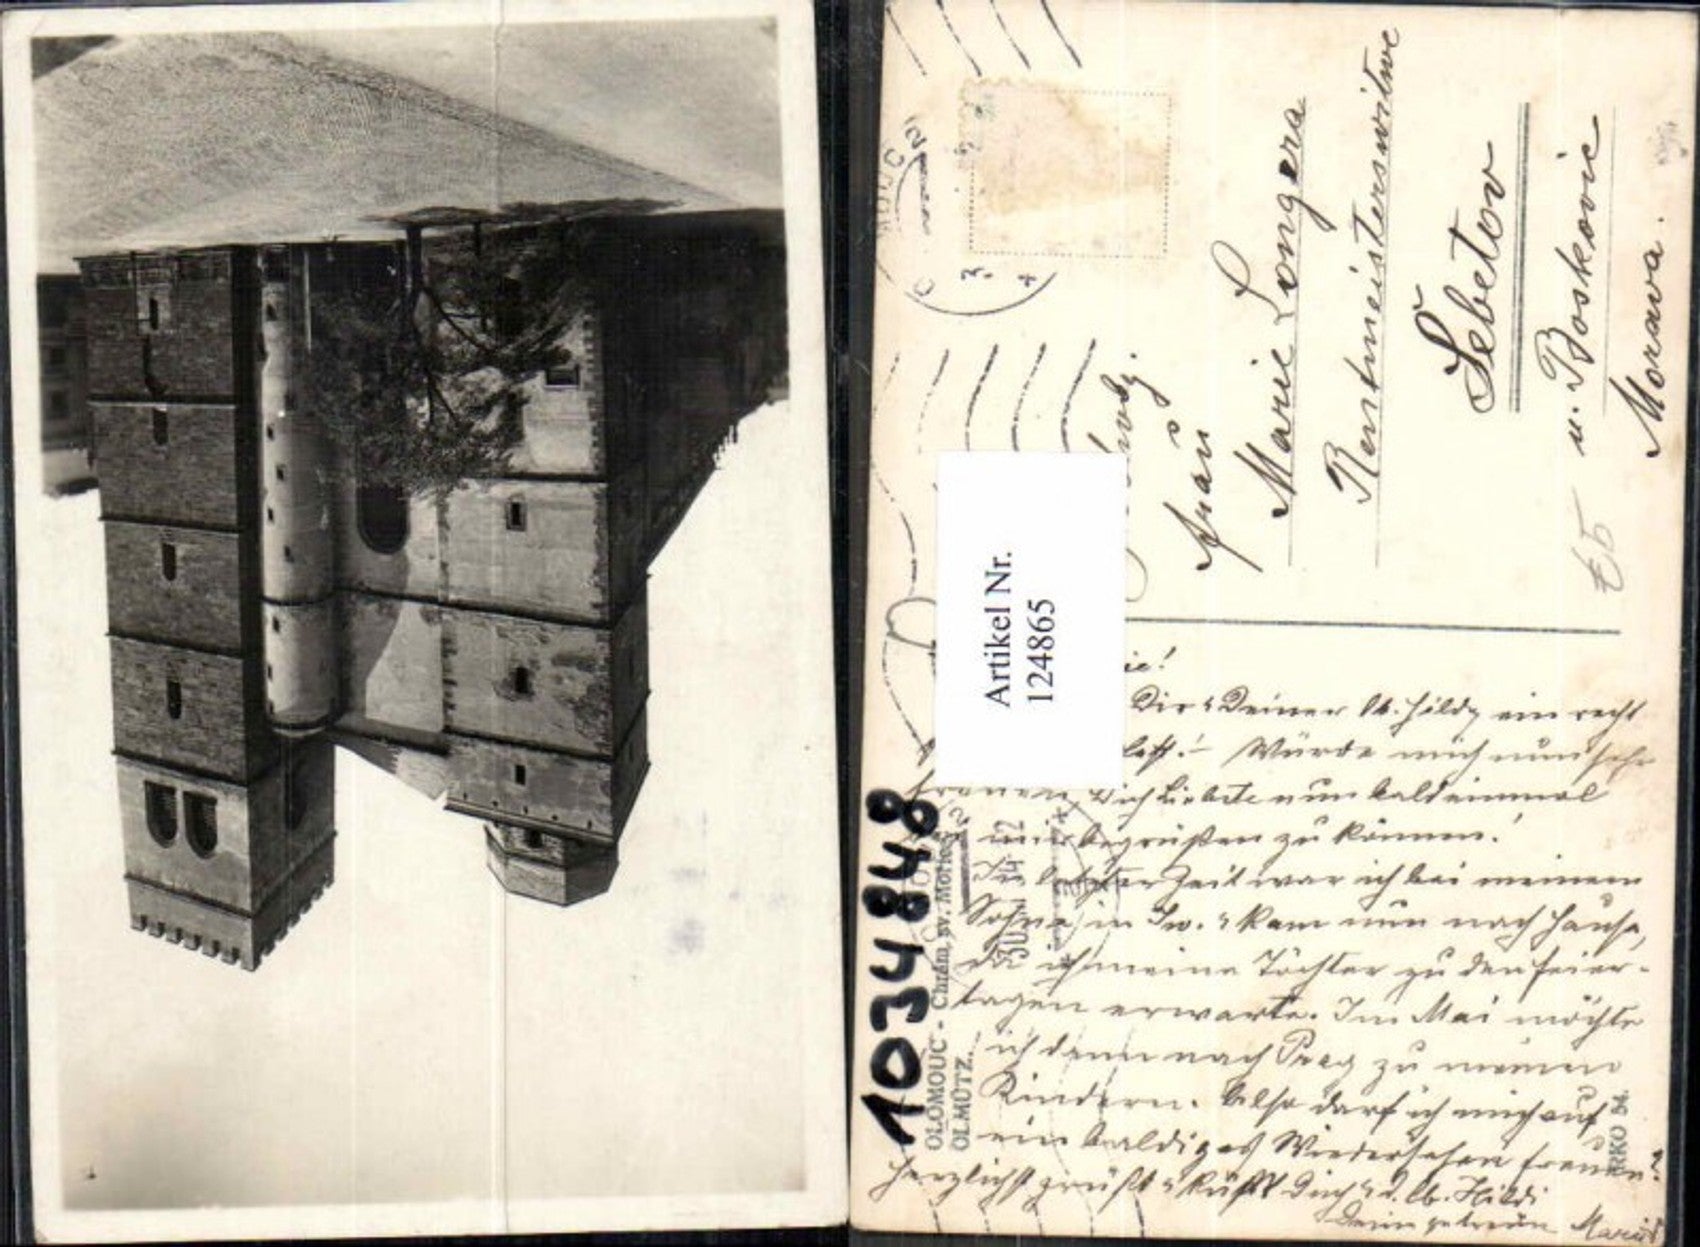 Artikel Nr.
124865
1034848
OLOMOUC - Chrám sv. Mořice
OLMÜTZ.
Frau
Marie Longera
Rentmeisterswitwe
Šebetov
u. Boskovic
Morawa.
Dir u. Deiner lb. Hildy ein recht
Würde mich nun sehr
freuen, Dich Liebste nun bald einmal
begrüßen zu können!
In letzter Zeit war ich bei meinem
Sohne in u. kam nun nach Hause,
da ich meine Töchter zu den Feier-
tagen erwarte. Im Mai möchte
ich dann nach Prag zu meinen
Kindern. Also darf ich mich auf
ein baldiges Wiedersehen freuen?
Herzlichst grüßt u. küßt Dich u. d. lb. Hildi
Deine getreue